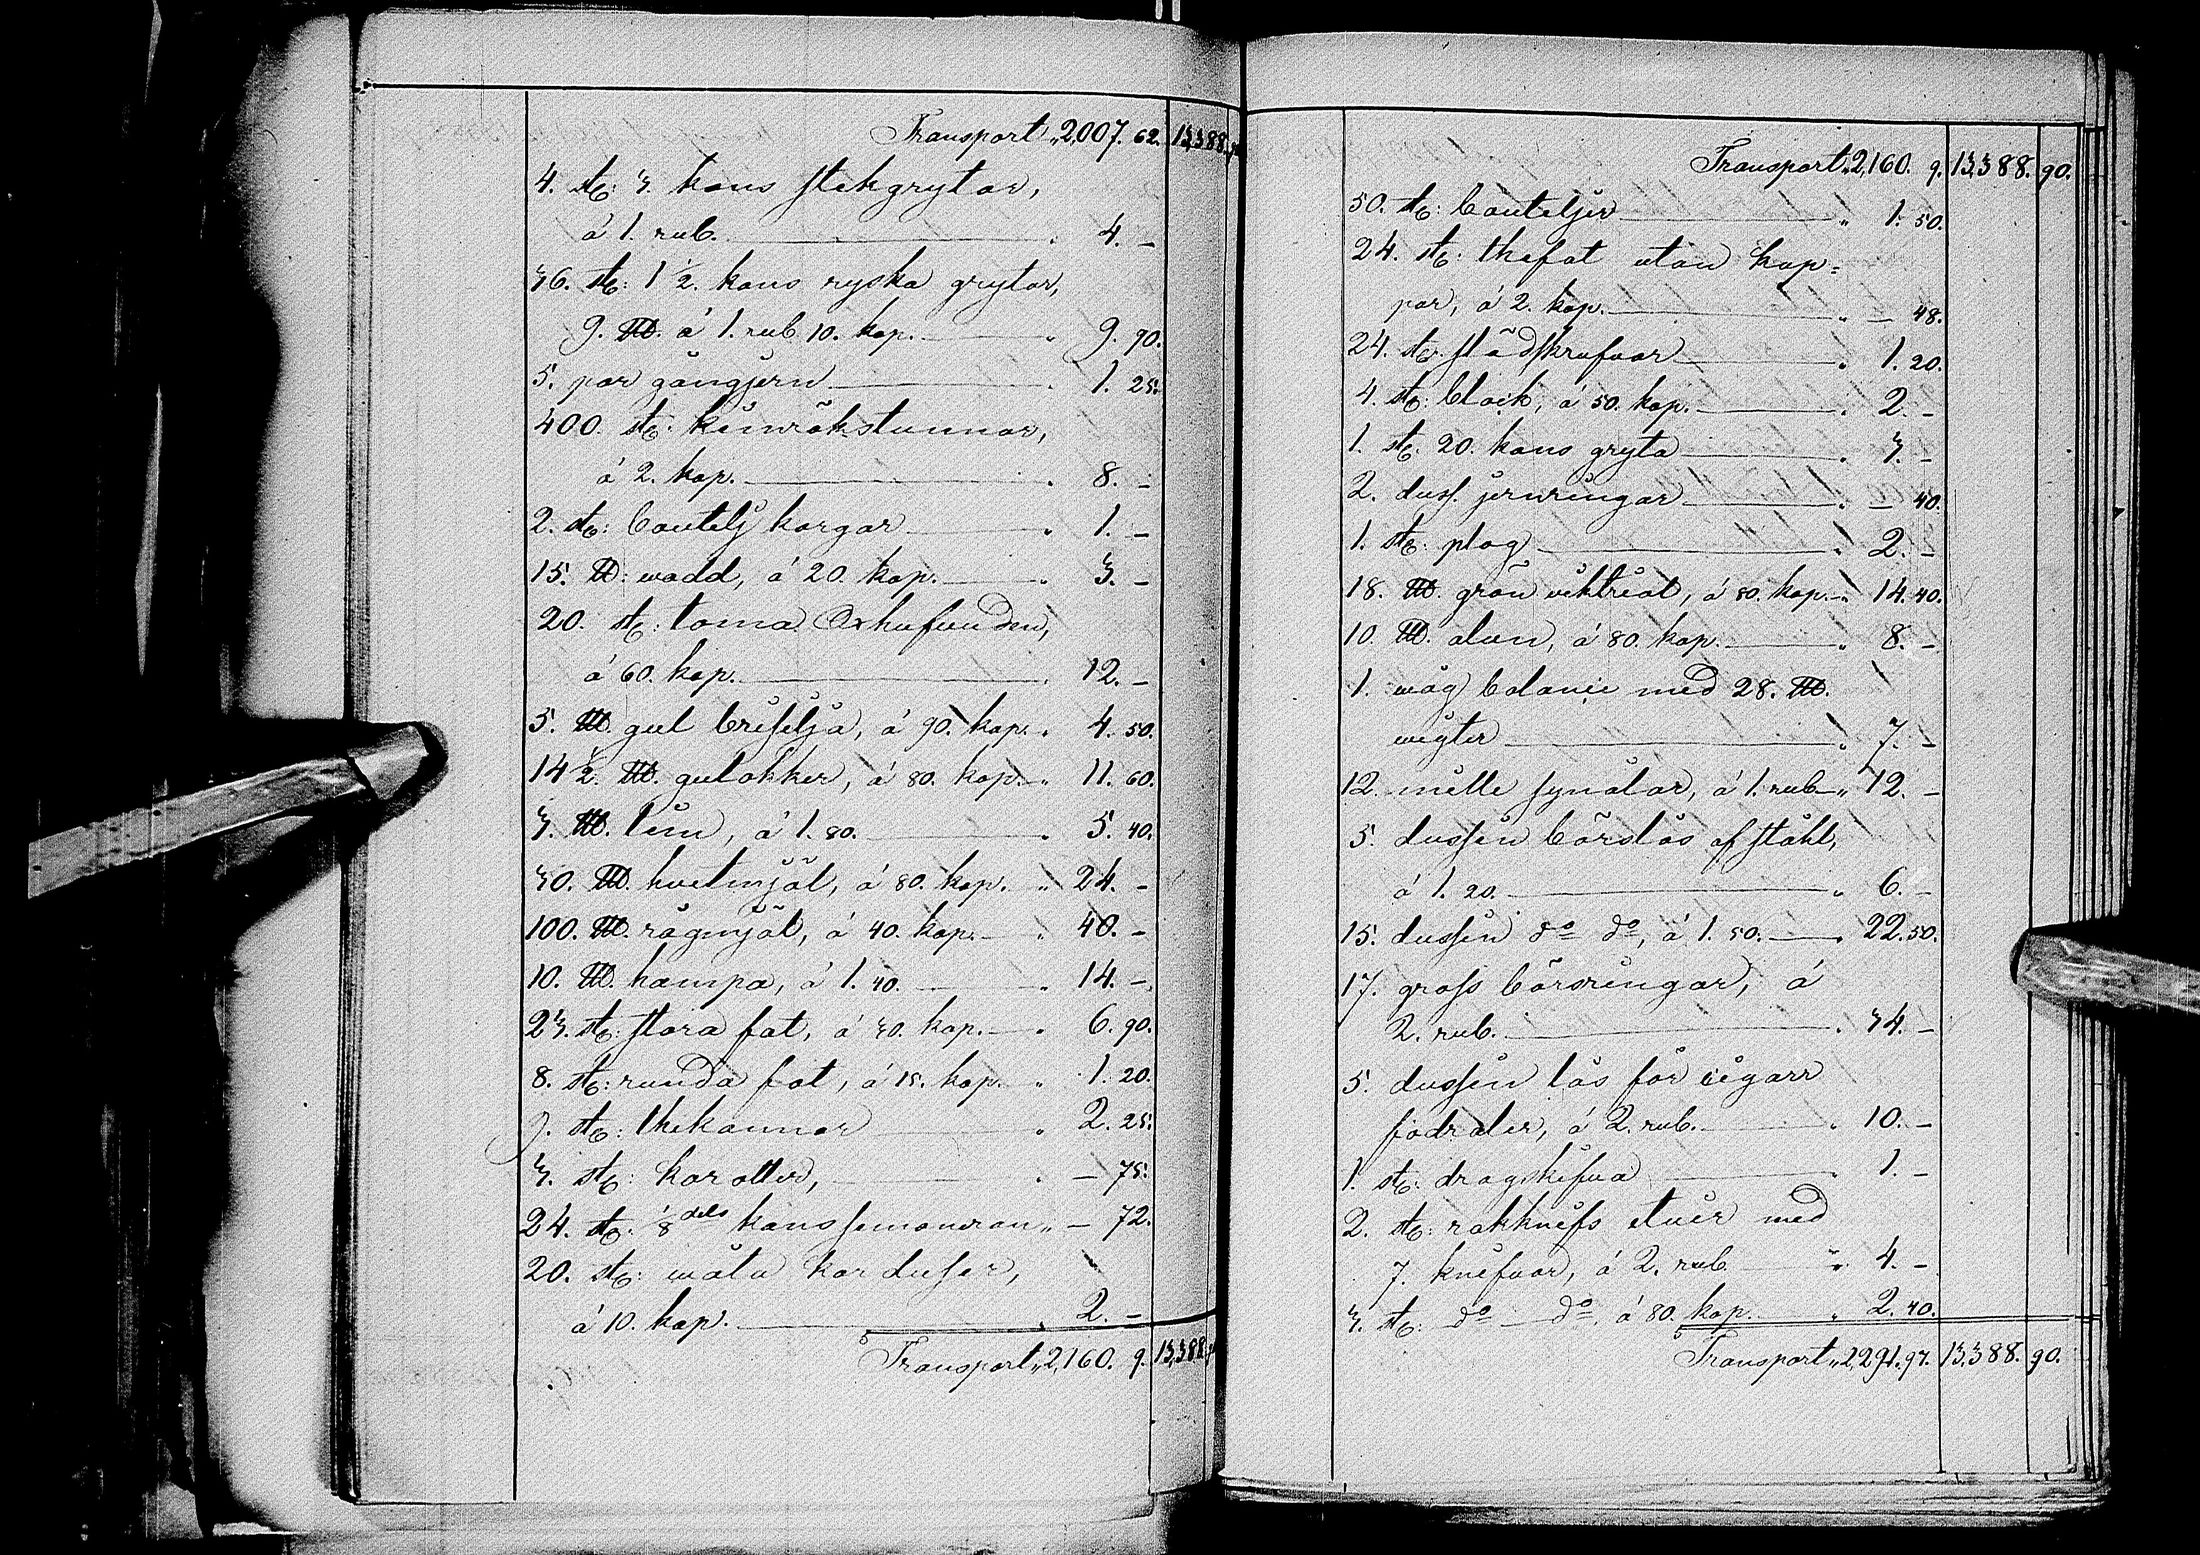 Transport „ 2,007. 62. 13,388. 90.
4. st: 3. kans stekgrytor,
á 1. rub. „ 4. –
36. st: 1 1/2. kans ryska grytor,
9. LU. á 1. rub 10. kop. „ 9. 90.
5. par gångjern „ 1. 25.
400. st: kimröks tunnor,
á 2. kop. „ 8. –
2. st: boutelj korgar „ 1. –
15. U: wadd, á 20. kop. „ 3. –
20. st: toma Oxhufvuden,
á 60. kop. „ 12. –
5. LU. gul bresilja, á 90. kop. „ 4. 50.
14 1/2. LU. gulokker, á 80. kop. „ 11. 60.
3. LU. lim, á 1. 80. „ 5. 40.
30. LU. hvetmjöl, á 80. kop. „ 24. –
100. LU. rågmjöl, á 40. kop. „ 40. –
10. LU. hampa, á 1. 40. „ 14. –
23. st: stora fat, á 30. kop. „ 6. 90.
8. st: runda fat, á 15. kop. „ 1. 20.
9. st: thekannor „ 2. 25.
3. st: karotter, „ – 75.
24. st: 1/8 dels kans „ – 72.
20. st: måla karduser,
á 10. kop. „ 2. –
Transport „ 2,160. 9. 13,388. 90.
Transport „ 2,160. 9. 13,388. 90.
50. st: bouteljer „ 1. 50.
24. st: thefat utan kop=
por, á 2. kop. „ – 48.
24. st: städskrufvar „ 1. 20.
4. st: block, á 50. kop. „ 2. –
1. st: 20. kans gryta „ 3. –
2. duss. jernringar „ – 40.
1. st: plog „ 2. –
18. LU. grön viktriol, á 80. kop. „ 14. 40.
10. LU. alun, á 80. kop. „ 8. –
1. wåg balance med 28. LU.
wigter „ 7. –
12. mille synålar, á 1. rub „ 12. –
5. dussin börslås af stål,
á 1. 20. „ 6. –
15. dussin do do, á 1. 50. „ 22. 50.
17. gross börsringar, á
2. rub. „ 34. –
5. dussin lås för cigarr
fodraler, á 2. rub. „ 10. –
1. st: dragskifva „ 1. –
2. st: rakknifs etuier med
7. knifvar, á 2. rub „ 4. –
3. st: do do, á 80. kop. „ 2. 40.
Transport „ 2,291. 97. 13,388. 90.